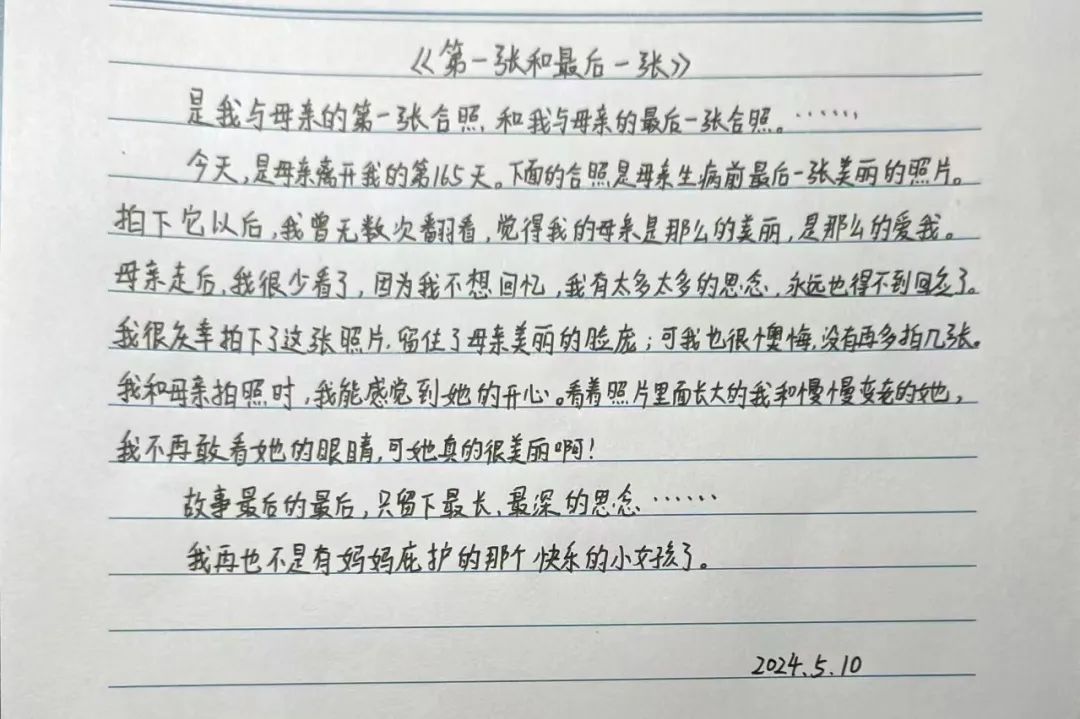 《第一张和最后一张》
是我与母亲的第一张合照,和我与母亲的最后一张合照。……
今天,是母亲离开我的第165天。下面的合照是母亲生病前最后一张美丽的照片。
拍下它以后,我曾无数次翻看,觉得我的母亲是那么的美丽,是那么的爱我。
母亲走后,我很少看了,因为我不想回忆,我有太多太多的思念,永远也得不到回应了。
我很庆幸拍下了这张照片,留住了母亲美丽的脸庞;可我也很懊悔,没有再多拍几张。
我和母亲拍照时,我能感觉到她的开心。看着照片里面长大的我和慢慢变老的她,
我不再敢看她的眼睛,可她真的很美丽啊!
故事最后的最后,只留下最长、最深的思念……
我再也不是有妈妈庇护的那个快乐的小女孩了。
2024.5.10